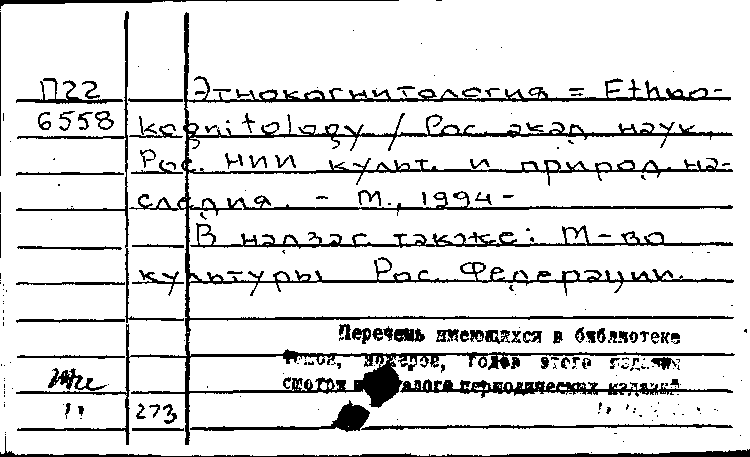 П22 Этнокогнитология = Ethno-
6558 kognitology / Рос. акад. наук,
Рос. НИИ культ. и природ. на-
следия. - М., 1994-
В надзаг. также: М-во
культуры Рос. Федерации.
Перечень имеющихся в библиотеке
томов, номеров, годов этого издания
смотри в каталоге периодических изданий
11 273